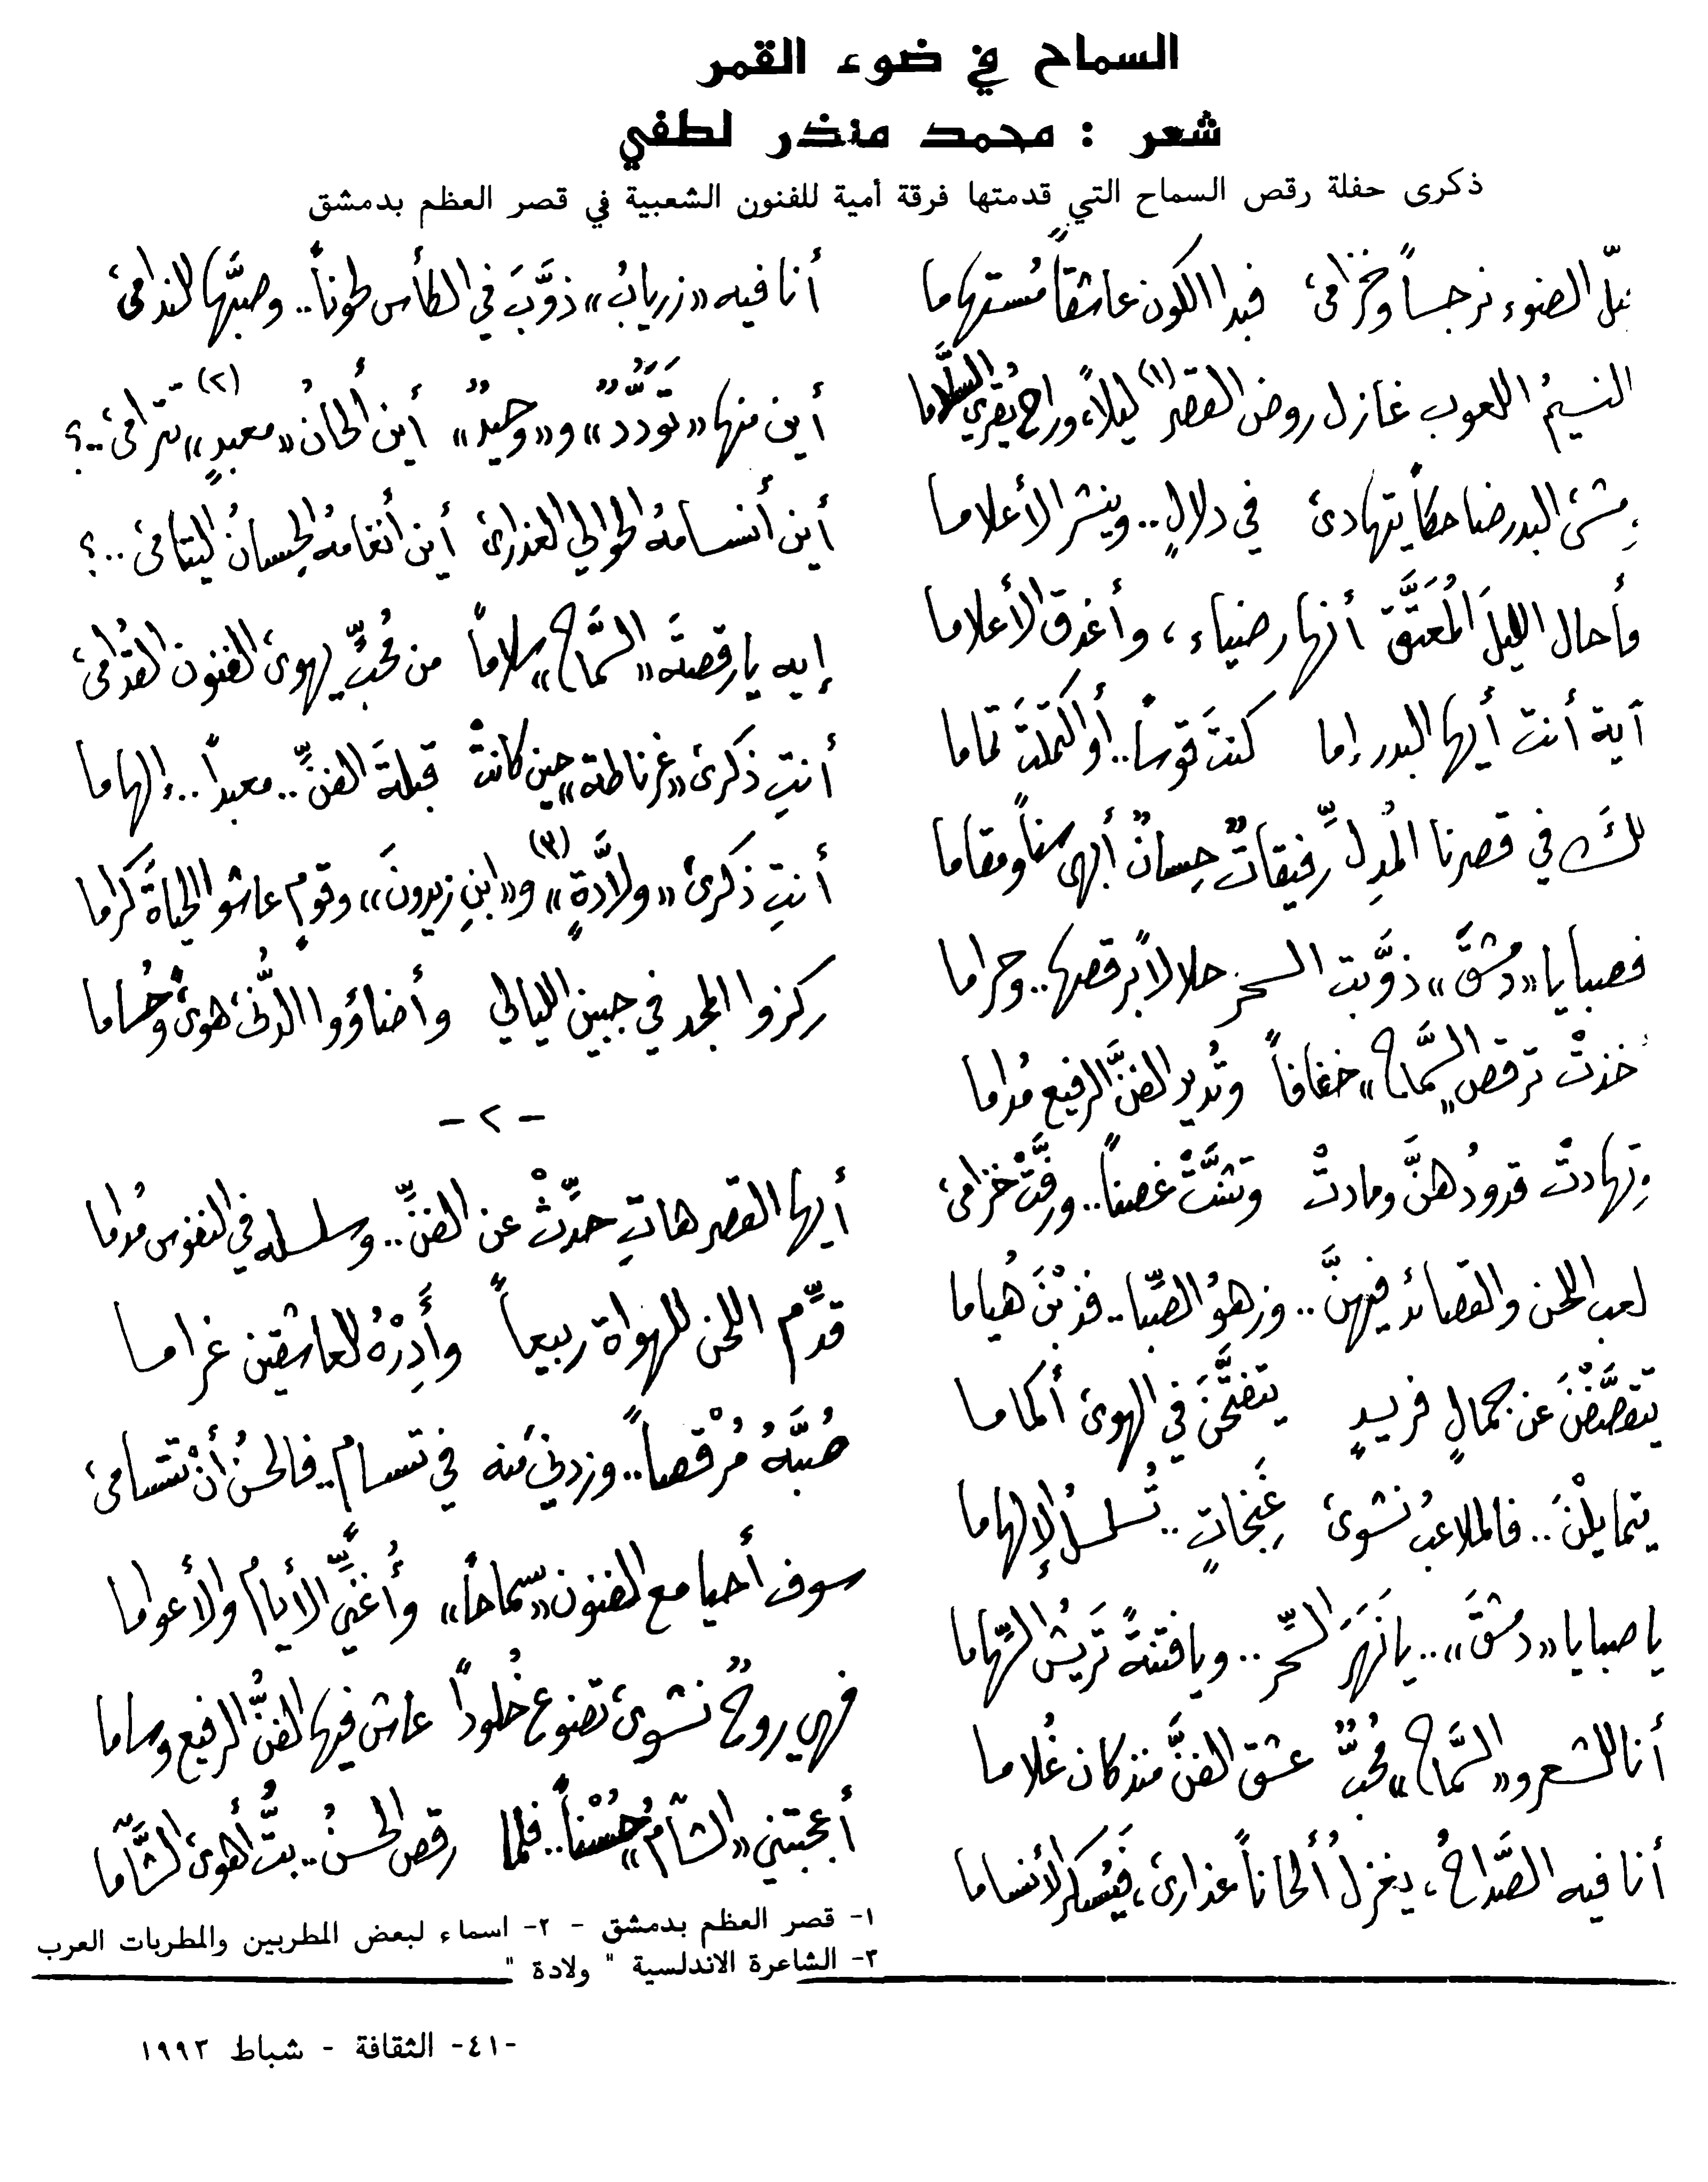 السماح في ضوء القمر
شعر : محمد منذر لطفي
ذكرى حفلة رقص السماح التي قدمتها فرقة أمية للفنون الشعبية في قصر العظم بدمشق
الضوء نرجساً وخزامىٰ فبدا الكون عاشقاً مُستهاما
النسيمُ اللعوب غازل روض القصر (١) ليلاً، وراح يُقري السَّلاما
مشىٰ البدر ضاحكاً يتهادىٰ في دلالٍ.. وينشر الأعلاما
وأحال الليلَ المُعَتَّق أنهار ضياء، وأغدق الأعلاما
آية أنت أيها البدر إما كنتَ قوساً.. أو اكتملتَ تماما
لكَ في قصرنا المُدِلِّ رفيقاتٌ حِسانٌ أبهى سناً ومقاما
فصبايا «دمشقَ» ذوَّبت السحر حلالاً برقصها.. وحراما
خذتْ ترقص «السَّماح» خفافاً وتُدير الفنَّ الرفيع مُداما
وتهادتْ قدودُهنَّ ومادتْ وتثنَّتْ غصناً.. ورفَّتْ خزامىٰ
لعب اللحن والقصائد فيهنَّ.. وزهوُ الصِّبا.. فذبْنَ هُياما
يتقصَّفْنَ عن جمالٍ فريدٍ يتفتَّحْنَ في الهوىٰ أكماما
يتمايلْنَ.. فالملاعبُ نشوىٰ غَنِجاتٍ.. تُسلسلُ الإلهاما
يا صبايا «دمشقَ».. يا نَهَرَ السِّحر.. ويا فتنةً تَريشُ السِّهاما
أنا للشعر و«السَّماح» مُحبٌّ عشق الفنَّ منذ كان غُلاما
أنا فيه الصَّداحُ، يغزلُ ألحاناً عذارىٰ، فيُسكر الأنساما
أنا فيه «زريابُ» ذوَّبَ في الكأس لحوناً.. وصبَّها للندامىٰ
أين منها «تَوَدُّدٌ» و«وحيدٌ» أين ألحانُ «معبدٍ» (٢) تترامىٰ..؟
أين أنسامهُ الخوالي العذارىٰ أين أنغامهُ الحِسانُ اليتامىٰ..؟
إيه يا رقصةَ «السَّماح» سلاماً من مُحبٍّ يهوىٰ الفنون القُدامىٰ
أنتِ ذكرىٰ «غرناطة» حين كانتْ قبلةَ الفنِّ.. معبداً.. إلهاما
أنتِ ذكرىٰ «ولاَّدةٍ» (٣) و«ابنِ زيدونَ» وقومٍ عاشوا الحياةَ كراما
ركزوا المجد في جبين الليالي وأضاؤوا الدُّنىٰ هوىً وحُساما
-٢-
أيها القصر هاتِ حدِّثْ عن الفنِّ.. وسلسله في النفوس مُداما
قدِّم اللحن للهواة ربيعاً وأَدِرْهُ للعاشقين غراما
صُبَّهُ مُرْقصاً.. وزدنيَ منه في تسام.. فالحسنُ أنْ نتسامىٰ
سوف أحيا مع الفنون «سماحاً» وأُغنّي الأيامَ والأعواما
فهي روحٌ نشوىٰ تضوع خُلوداً عاش فيها الفنُّ الرفيع وساما
أعجبتني «الشآمُ» حُسْناً.. فلما رقص الحسنُ.. بتُّ أهوىٰ الشَّآما
١- قصر العظم بدمشق - ٢- اسماء لبعض المطربين والمطربات العرب
٣- الشاعرة الاندلسية " ولادة "
-٤١- الثقافة - شباط ١٩٩٣